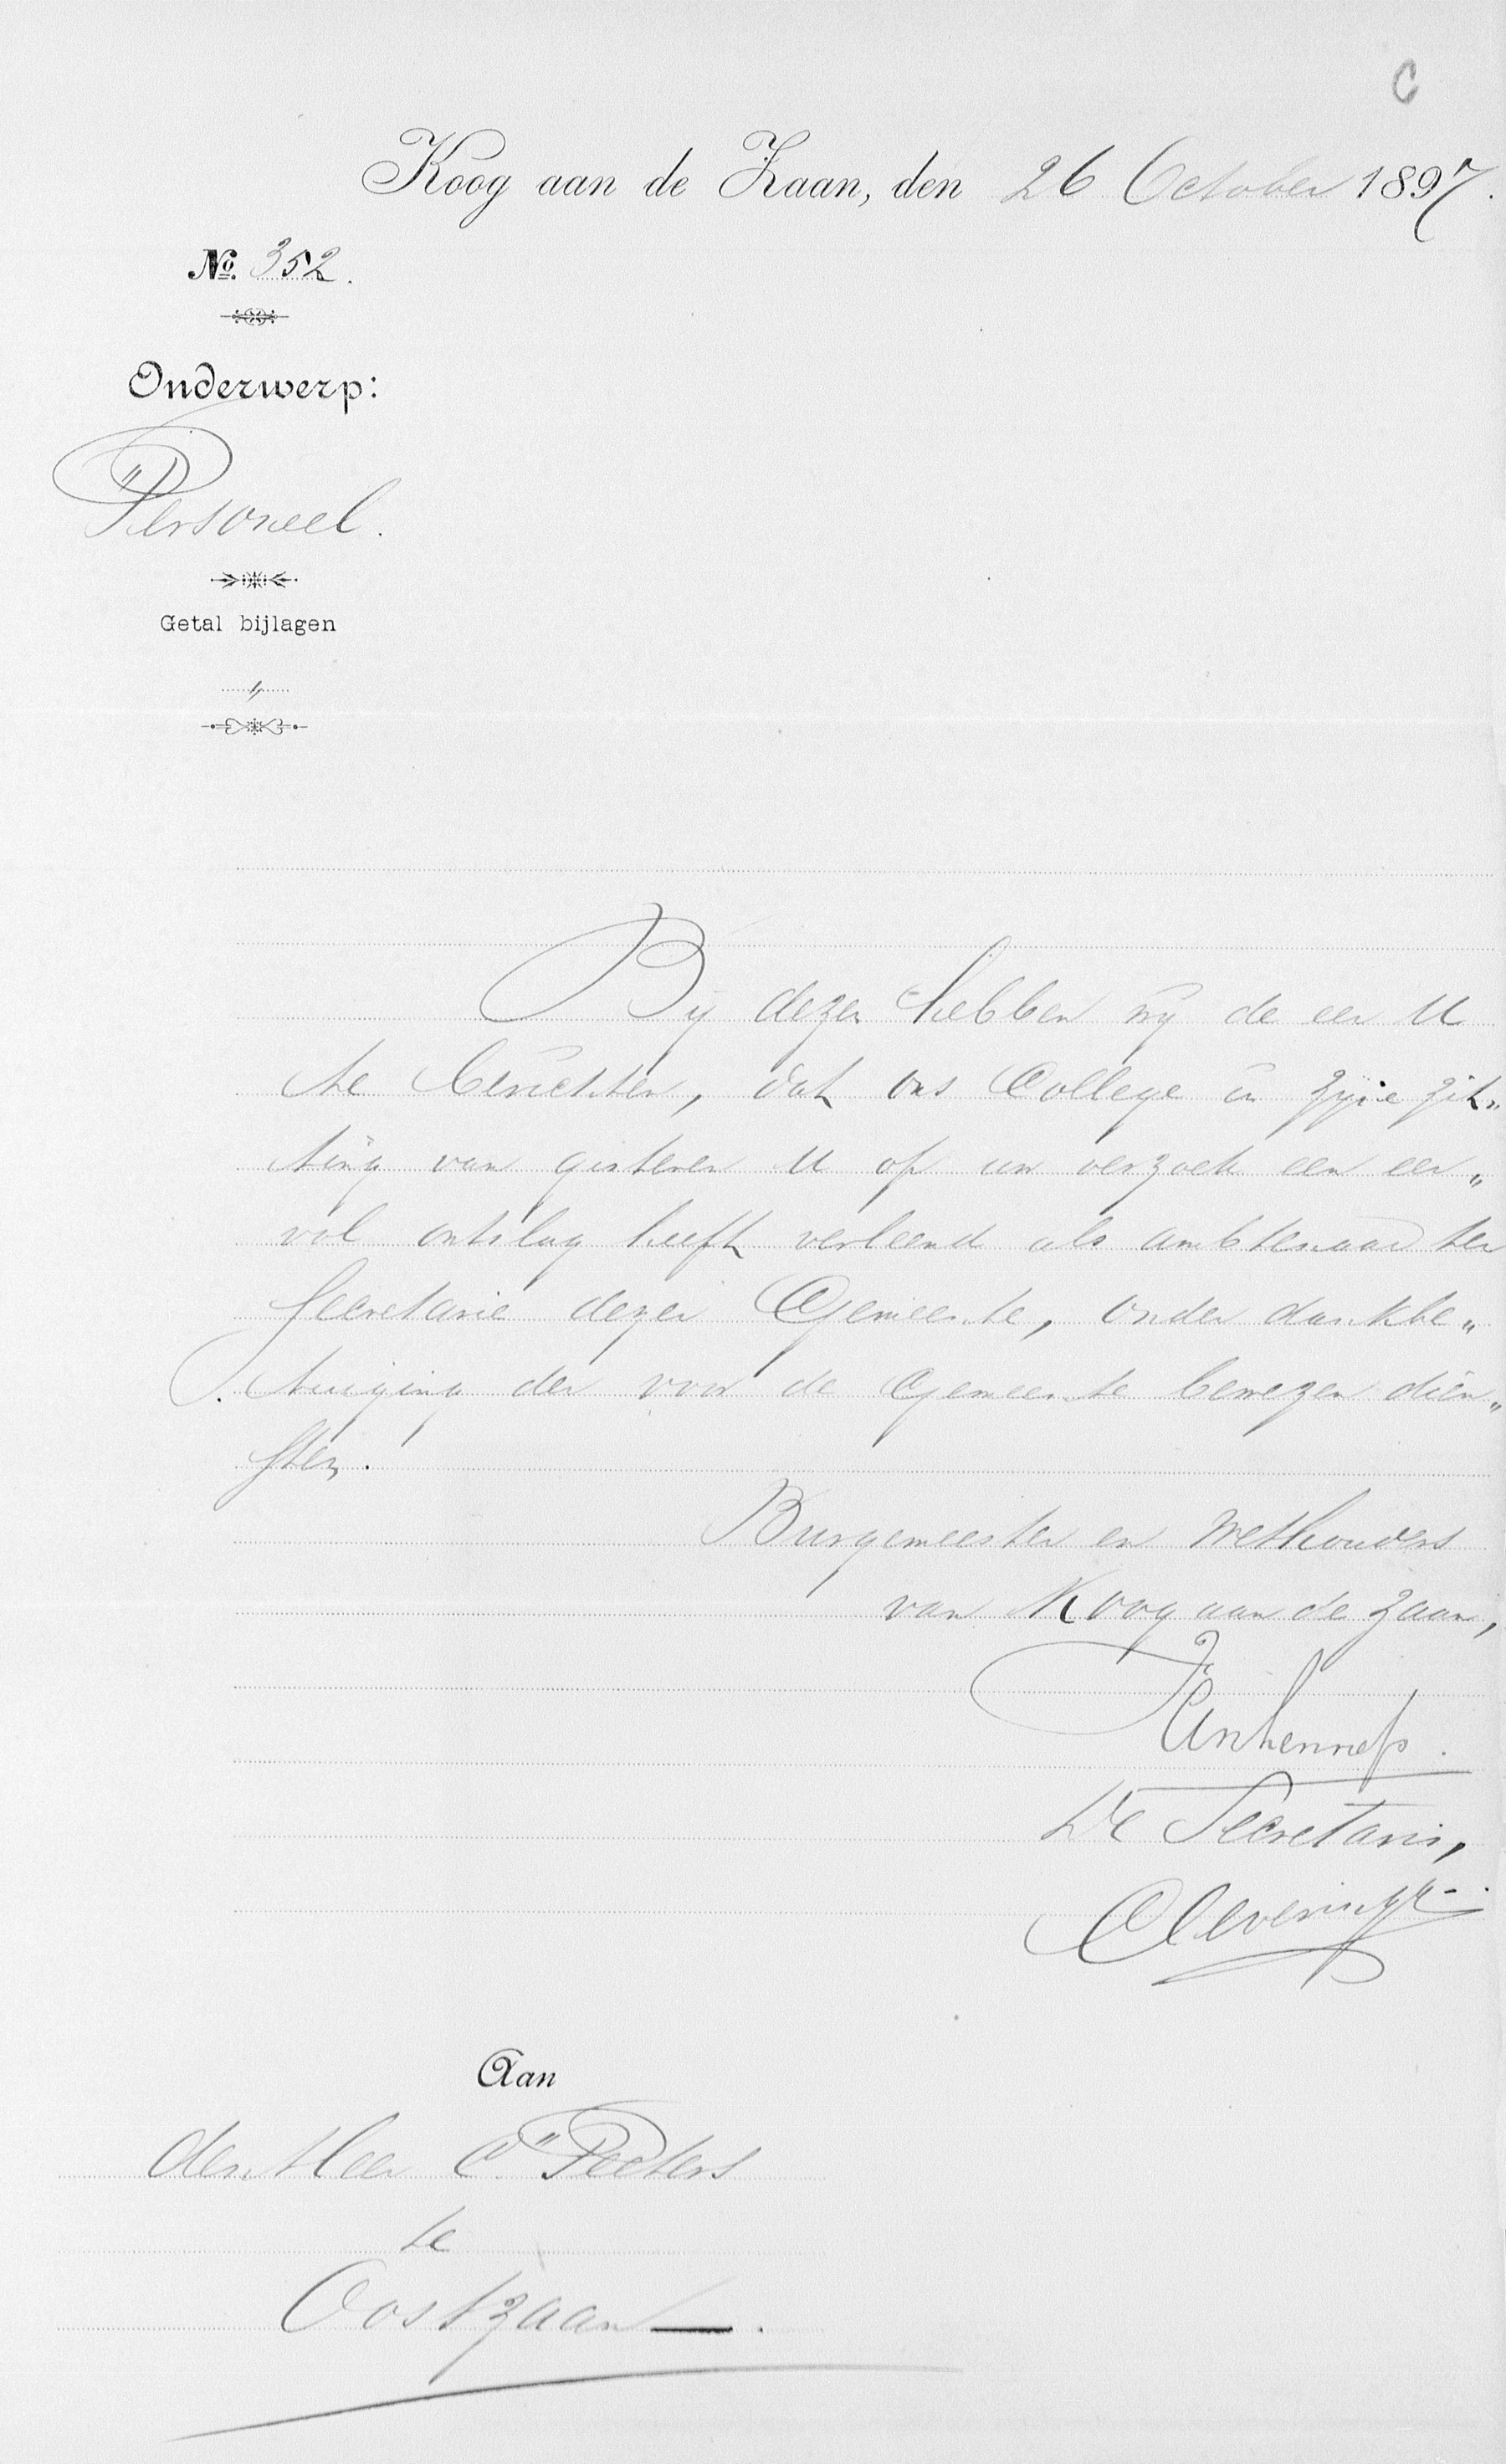 C
Koog aan de Zaan, den 26 October 1897.
No. 352.
Onderwerp:
Personeel.
Getal bijlagen
Bij dezen hebben wij de eer U
te berichten, dat ons College in zijne zit„
ting van gisteren U op uw verzoek een eer„
vol ontslag heeft verleend als ambtenaar ter
Secretarie dezer Gemeente, onder dankbe„
tuiging der voor de Gemeente bewezen dien„
sten.
Burgemeester en Wethouders
van Koog aan de Zaan,
De Secretaris,
Aan
den Heer C. Peeters
te
Oostzaan.